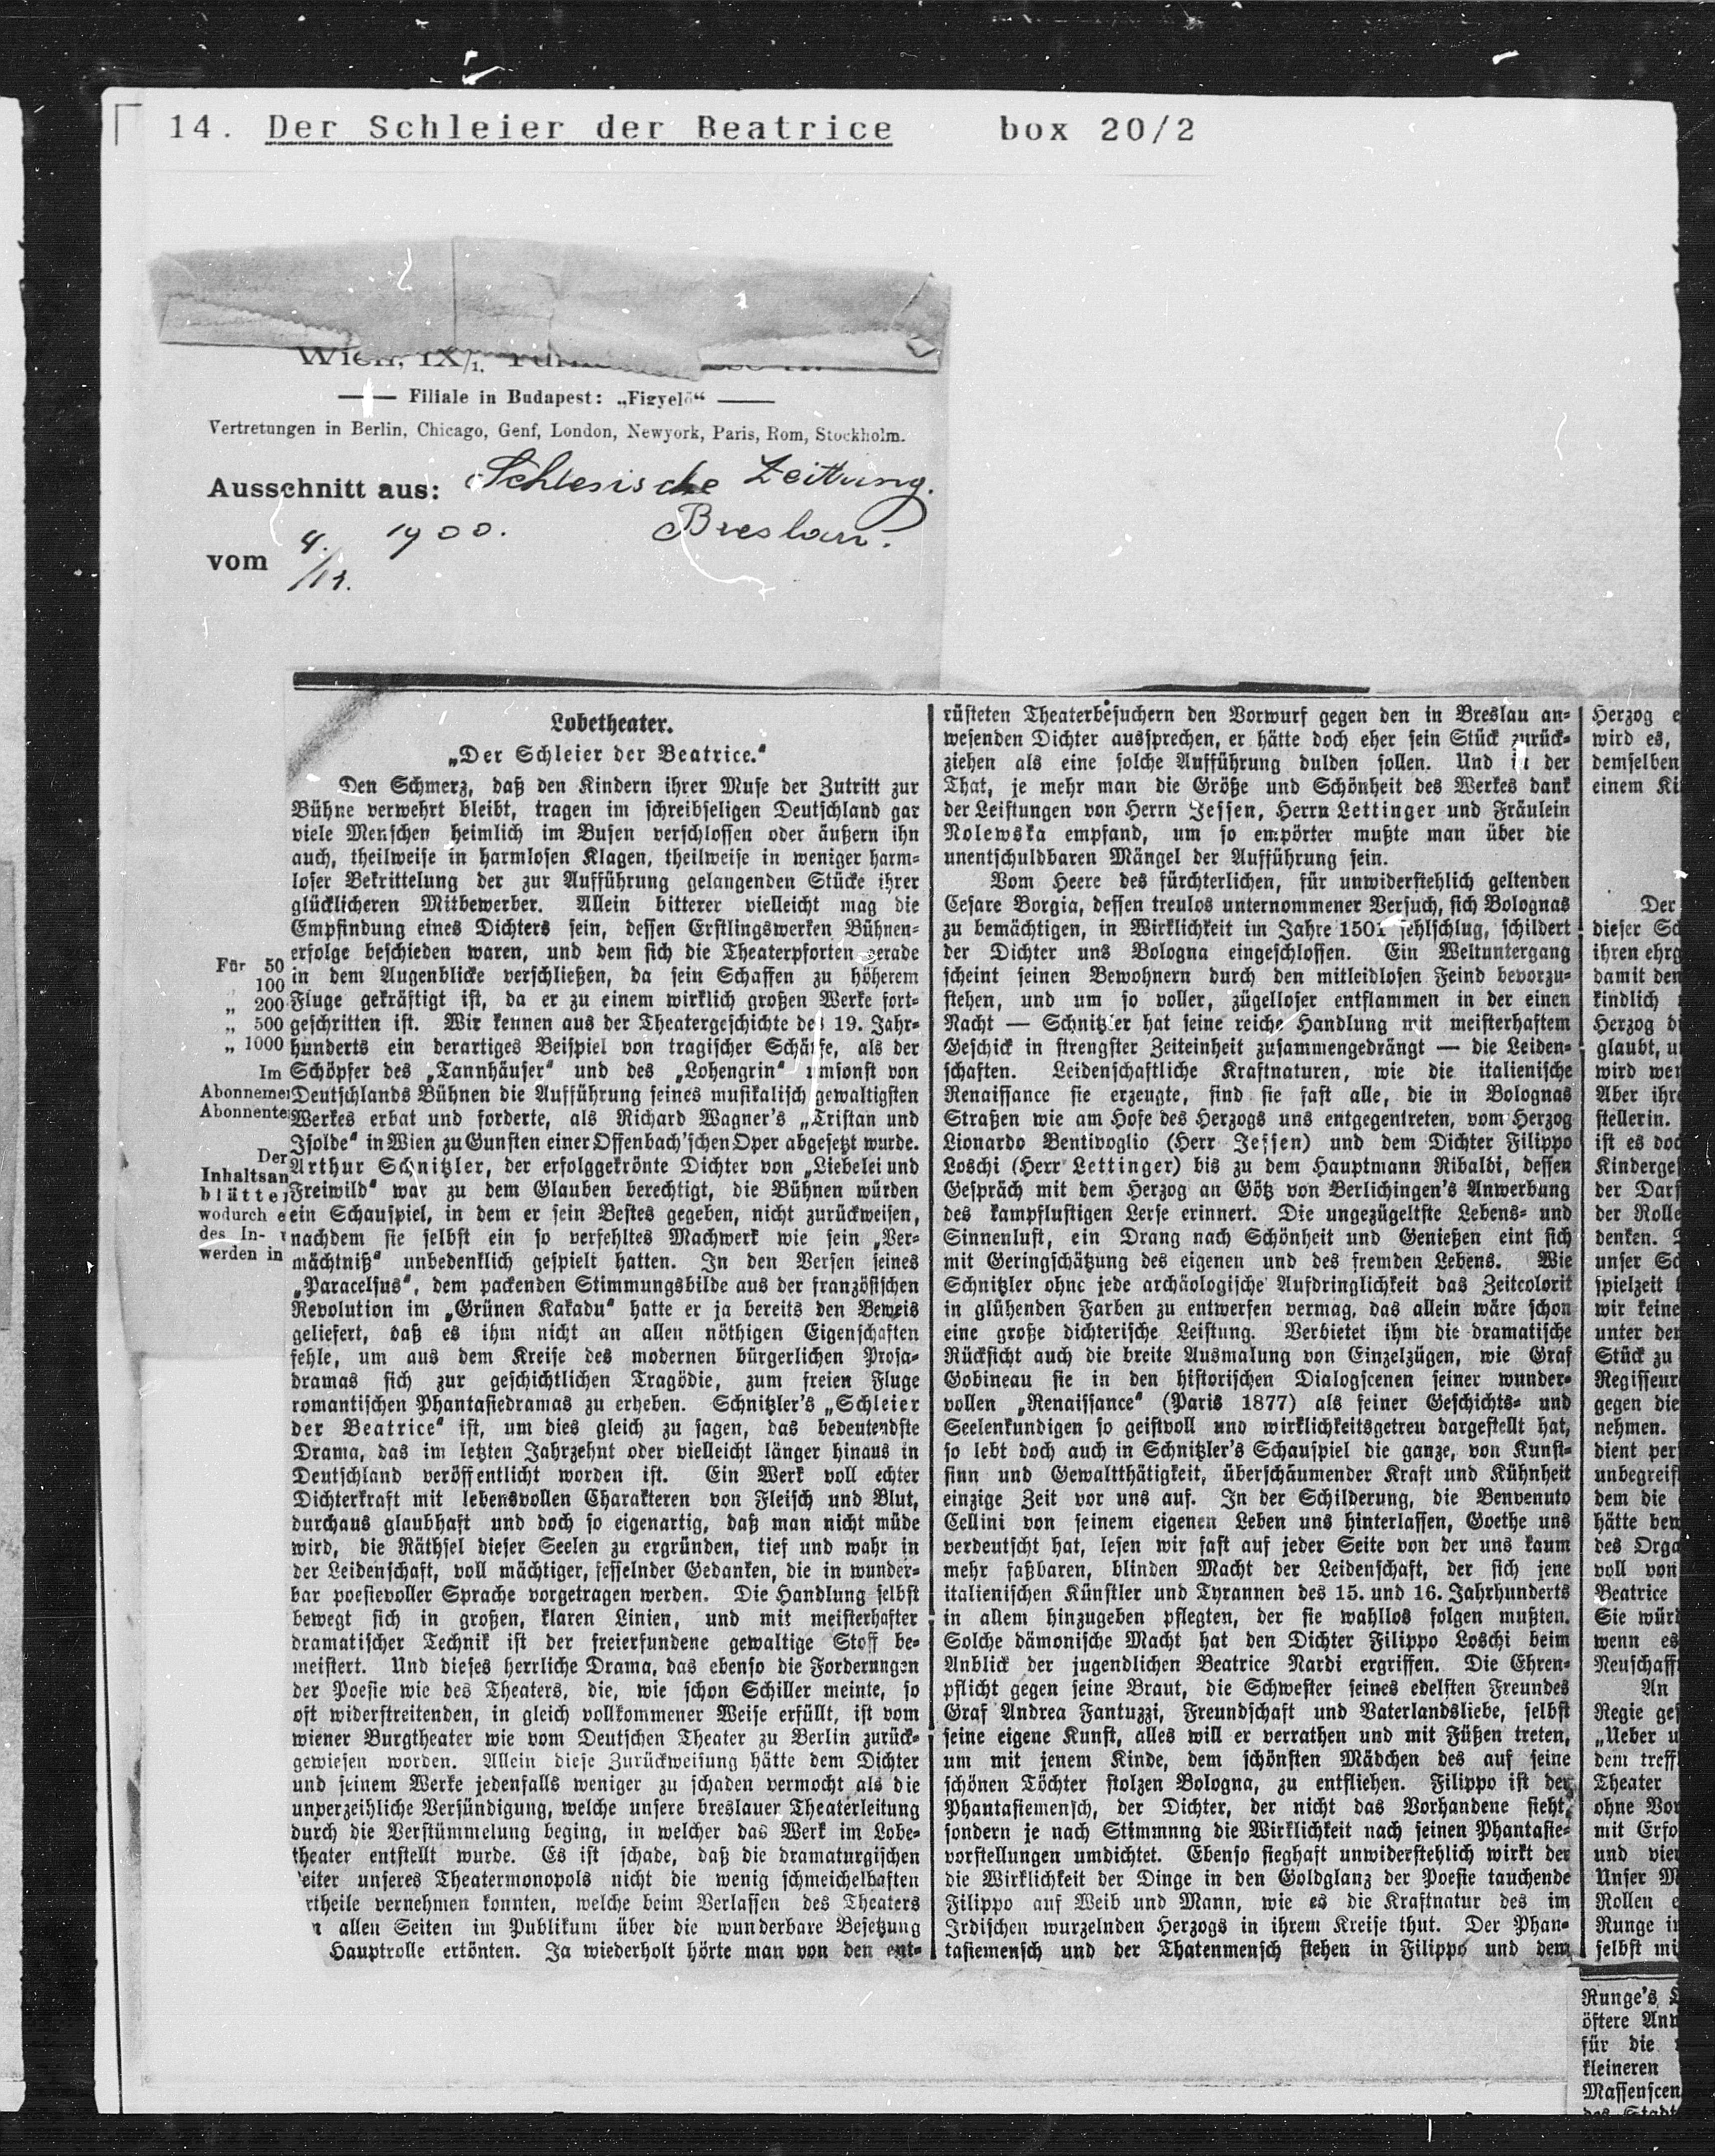 14. Der Schleier der Beatrice box 20/2
Wien, IX/1.
Filiale in Budapest: „Figyelö“
Vertretungen in Berlin, Chicago, Genf, London, Newyork, Paris, Rom, Stockholm.
Ausschnitt aus: Schlesische Zeitung.
Breslau.
vom 4./11. 1900.
Für 50
100
„ 200
„ 500
„ 1000
Im
Abonnemen
Abonnente
Der
Inhaltsan
blätter
wodurch e
des In-
werden in
Lobetheater.
„Der Schleier der Beatrice.“
Den Schmerz, daß den Kindern ihrer Muse der Zutritt zur
Bühne verwehrt bleibt, tragen im schreibseligen Deutschland gar
viele Menschen heimlich im Busen verschlossen oder äußern ihn
auch, theilweise in harmlosen Klagen, theilweise in weniger harm-
loser Bekrittelung der zur Aufführung gelangenden Stücke ihrer
glücklicheren Mitbewerber. Allein bitterer vielleicht mag die
Empfindung eines Dichters sein, dessen Erstlingswerken Bühnen-
erfolge beschieden waren, und dem sich die Theaterpforten gerade
in dem Augenblicke verschließen, da sein Schaffen zu höherem
Fluge gekräftigt ist, da er zu einem wirklich großen Werke fort-
geschritten ist. Wir kennen aus der Theatergeschichte des 19. Jahr-
hunderts ein derartiges Beispiel von tragischer Schärfe, als der
Schöpfer des „Tannhäuser“ und des „Lohengrin“ umsonst von
Deutschlands Bühnen die Aufführung seines musikalisch gewaltigsten
Werkes erbat und forderte, als Richard Wagner's „Tristan und
Isolde“ in Wien zu Gunsten einer Offenbach'schen Oper abgesetzt wurde.
Arthur Schnitzler, der erfolggekrönte Dichter von „Liebelei und
Freiwild“ war zu dem Glauben berechtigt, die Bühnen würden
ein Schauspiel, in dem er sein Bestes gegeben, nicht zurückweisen,
nachdem sie selbst ein so verfehltes Machwerk wie sein „Ver-
mächtniß“ unbedenklich gespielt hatten. In den Versen seines
„Paracelsus“, dem packenden Stimmungsbilde aus der französischen
Revolution im „Grünen Kakadu“ hatte er ja bereits den Beweis
geliefert, daß es ihm nicht an allen nöthigen Eigenschaften
fehle, um aus dem Kreise des modernen bürgerlichen Prosa-
dramas sich zur geschichtlichen Tragödie, zum freien Fluge
romantischen Phantasiedramas zu erheben. Schnitzler's „Schleier
der Beatrice“ ist, um dies gleich zu sagen, das bedeutendste
Drama, das im letzten Jahrzehnt oder vielleicht länger hinaus in
Deutschland veröffentlicht worden ist. Ein Werk voll echter
Dichterkraft mit lebensvollen Charakteren von Fleisch und Blut,
durchaus glaubhaft und doch so eigenartig, daß man nicht müde
wird, die Räthsel dieser Seelen zu ergründen, tief und wahr in
der Leidenschaft, voll mächtiger, fesselnder Gedanken, die in wunder-
bar poesievoller Sprache vorgetragen werden. Die Handlung selbst
bewegt sich in großen, klaren Linien, und mit meisterhafter
dramatischer Technik ist der freierfundene gewaltige Stoff be-
meistert. Und dieses herrliche Drama, das ebenso die Forderungen
der Poesie wie des Theaters, die, wie schon Schiller meinte, so
oft widerstreitenden, in gleich vollkommener Weise erfüllt, ist vom
wiener Burgtheater wie vom Deutschen Theater zu Berlin zurück-
gewiesen worden. Allein diese Zurückweisung hätte dem Dichter
und seinem Werke jedenfalls weniger zu schaden vermocht als die
unverzeihliche Versündigung, welche unsere breslauer Theaterleitung
durch die Verstümmelung beging, in welcher das Werk im Lobe-
theater entstellt wurde. Es ist schade, daß die dramaturgischen
eiter unseres Theatermonopols nicht die wenig schmeichelhaften
rtheile vernehmen konnten, welche beim Verlassen des Theaters
n allen Seiten im Publikum über die wunderbare Besetzung
Hauptrolle ertönten. Ja wiederholt hörte man von den ent-
rüsteten Theaterbesuchern den Vorwurf gegen den in Breslau an-
wesenden Dichter aussprechen, er hätte doch eher sein Stück zurück-
ziehen als eine solche Aufführung dulden sollen. Und in der
That, je mehr man die Größe und Schönheit des Werkes dank
der Leistungen von Herrn Jessen, Herrn Lettinger und Fräulein
Rolewska empfand, um so empörter mußte man über die
unentschuldbaren Mängel der Aufführung sein.
Vom Heere des fürchterlichen, für unwiderstehlich geltenden
Cesare Borgia, dessen treulos unternommener Versuch, sich Bolognas
zu bemächtigen, in Wirklichkeit im Jahre 1501 fehlschlug, schildert
der Dichter uns Bologna eingeschlossen. Ein Weltuntergang
scheint seinen Bewohnern durch den mitleidlosen Feind bevorzu-
stehen, und um so voller, zügelloser entflammen in der einen
Nacht — Schnitzler hat seine reiche Handlung mit meisterhaftem
Geschick in strengster Zeiteinheit zusammengedrängt — die Leiden-
schaften. Leidenschaftliche Kraftnaturen, wie die italienische
Renaissance sie erzeugte, sind sie fast alle, die in Bolognas
Straßen wie am Hofe des Herzogs uns entgegentreten, vom Herzog
Lionardo Bentivoglio (Herr Jessen) und dem Dichter Filippo
Loschi (Herr Lettinger) bis zu dem Hauptmann Ribaldi, dessen
Gespräch mit dem Herzog an Götz von Berlichingen's Anwerbung
des kampflustigen Lerse erinnert. Die ungezügeltste Lebens- und
Sinnenlust, ein Drang nach Schönheit und Genießen eint sich
mit Geringschätzung des eigenen und des fremden Lebens. Wie
Schnitzler ohne jede archäologische Aufdringlichkeit das Zeitcolorit
in glühenden Farben zu entwerfen vermag, das allein wäre schon
eine große dichterische Leistung. Verbietet ihm die dramatische
Rücksicht auch die breite Ausmalung von Einzelzügen, wie Graf
Gobineau sie in den historischen Dialogscenen seiner wunder-
vollen „Renaissance“ (Paris 1877) als feiner Geschichts- und
Seelenkundigen so geistvoll und wirklichkeitsgetreu dargestellt hat,
so lebt doch auch in Schnitzler's Schauspiel die ganze, von Kunst-
sinn und Gewaltthätigkeit, überschäumender Kraft und Kühnheit
einzige Zeit vor uns auf. In der Schilderung, die Benvenuto
Cellini von seinem eigenen Leben uns hinterlassen, Goethe uns
verdeutscht hat, lesen wir fast auf jeder Seite von der uns kaum
mehr faßbaren, blinden Macht der Leidenschaft, der sich jene
italienischen Künstler und Tyrannen des 15. und 16. Jahrhunderts
in allem hinzugeben pflegten, der sie wahllos folgen mußten.
Solche dämonische Macht hat den Dichter Filippo Loschi beim
Anblick der jugendlichen Beatrice Nardi ergriffen. Die Ehren-
pflicht gegen seine Braut, die Schwester seines edelsten Freundes
Graf Andrea Fantuzzi, Freundschaft und Vaterlandsliebe, selbst
seine eigene Kunst, alles will er verrathen und mit Füßen treten,
um mit jenem Kinde, dem schönsten Mädchen des auf seine
schönen Töchter stolzen Bologna, zu entfliehen. Filippo ist der
Phantasiemensch, der Dichter, der nicht das Vorhandene sieht,
sondern je nach Stimmnng die Wirklichkeit nach seinen Phantasie-
vorstellungen umdichtet. Ebenso sieghaft unwiderstehlich wirkt der
die Wirklichkeit der Dinge in den Goldglanz der Poesie tauchende
Filippo auf Weib und Mann, wie es die Kraftnatur des im
Irdischen wurzelnden Herzogs in ihrem Kreise thut. Der Phan-
tasiemensch und der Thatenmensch stehen in Filippo und dem
Herzog e
wird es,
demselben
einem Ki
Der
dieser Sc
ihren ehrg
damit den
kindlich
Herzog di
glaubt, u
wird wer
Aber ihre
stellerin.
ist es doc
Kinderges
der Darf
der Rolle
denken.
unser Sc
spielzeit
wir keine
unter der
Stück zu
Regisseur
gegen die
nehmen.
dient per
unbegreif
dem die
hätte bew
des Orga
voll von
Beatrice
Sie würd
wenn es
Neuschaff
An
Regie ges
„Ueber u
dem treff
Theater
ohne Vor
mit Erfo
und vier
Unser M
Rollen e
Runge in
selbst mi
Runge's
öftere Anw
für die
kleineren
Massenscen
des Stadt